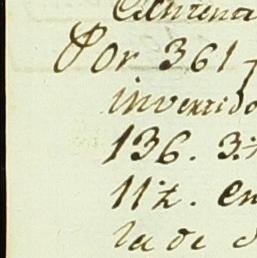 Por 361
invertido
136. 3
11 1/2. en
la de